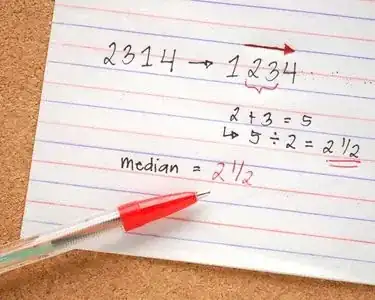 2314 → 1234
2 + 3 = 5
↳ 5 ÷ 2 = 2 1/2
median = 2 1/2